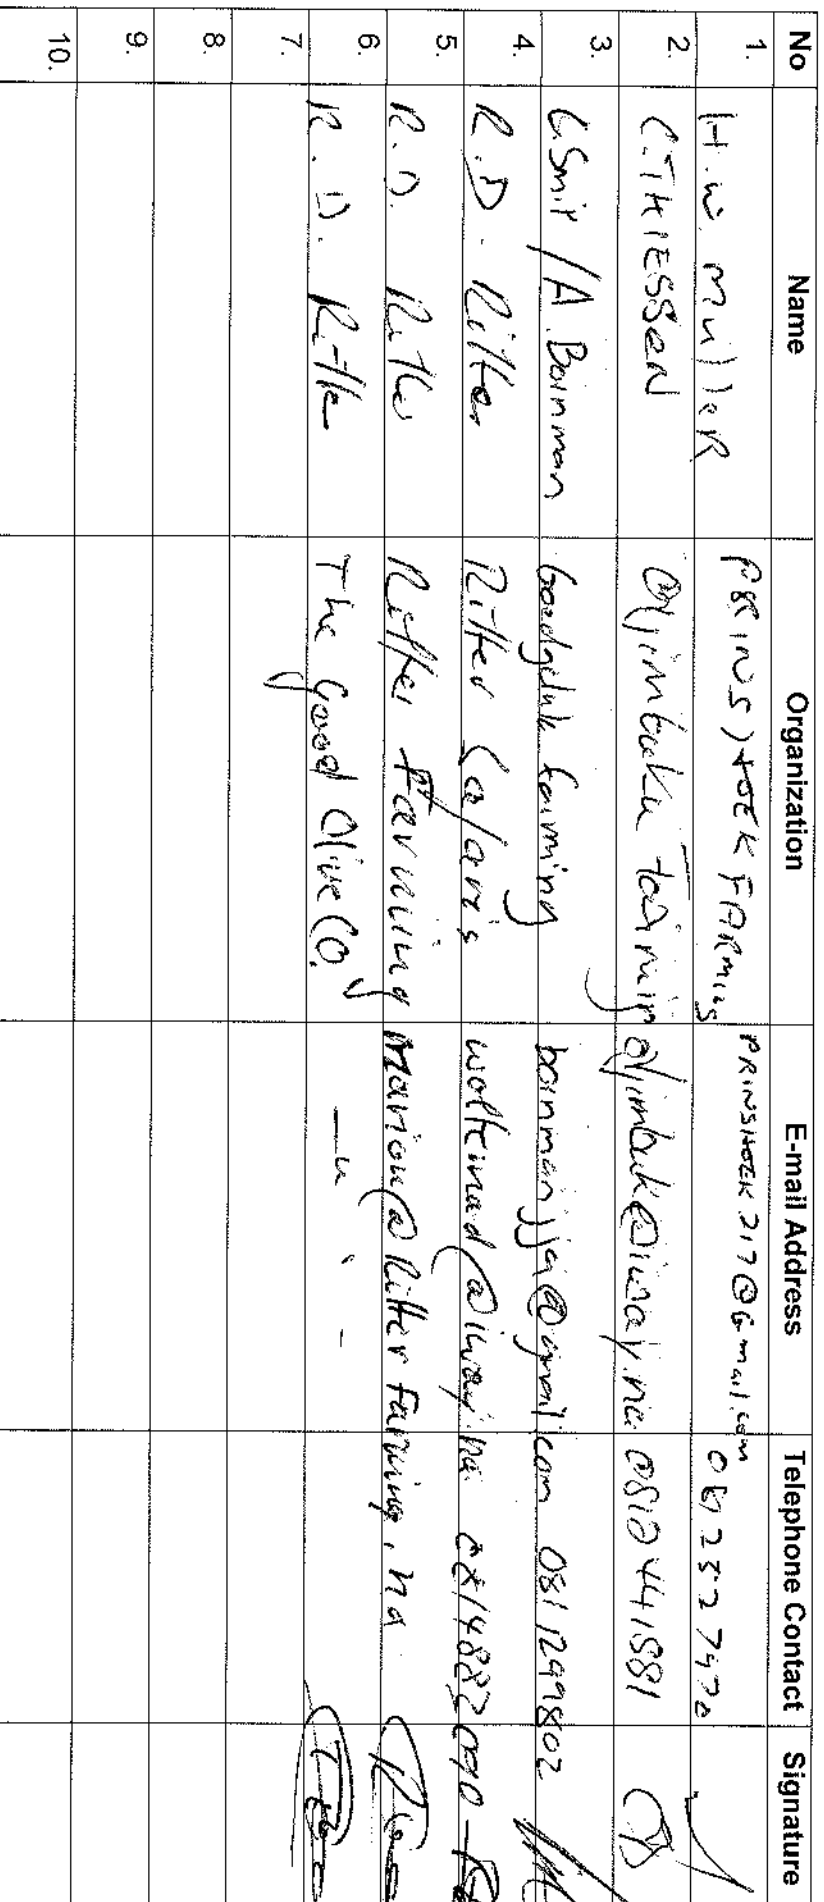 No Name Organization E-mail Address Telephone Contact Signature
1. H.W. MulleR PRINSHOEK FARMING PRINSHOEK217@Gmail.com
2. C. THIESSEN Otjimbuku Farming 0812441881
3. GSmit / A. Boinman Goedgeluk farming boinmanjja@gmail.com 081 2499802
4. R.D. Ritter Ritter Safaris 0814882090
5. R.D. Ritter Ritter Farming Marion@RitterFarming.na
6. R.D. Ritter The Good Olive Co. — " - -
7.
8.
9.
10.